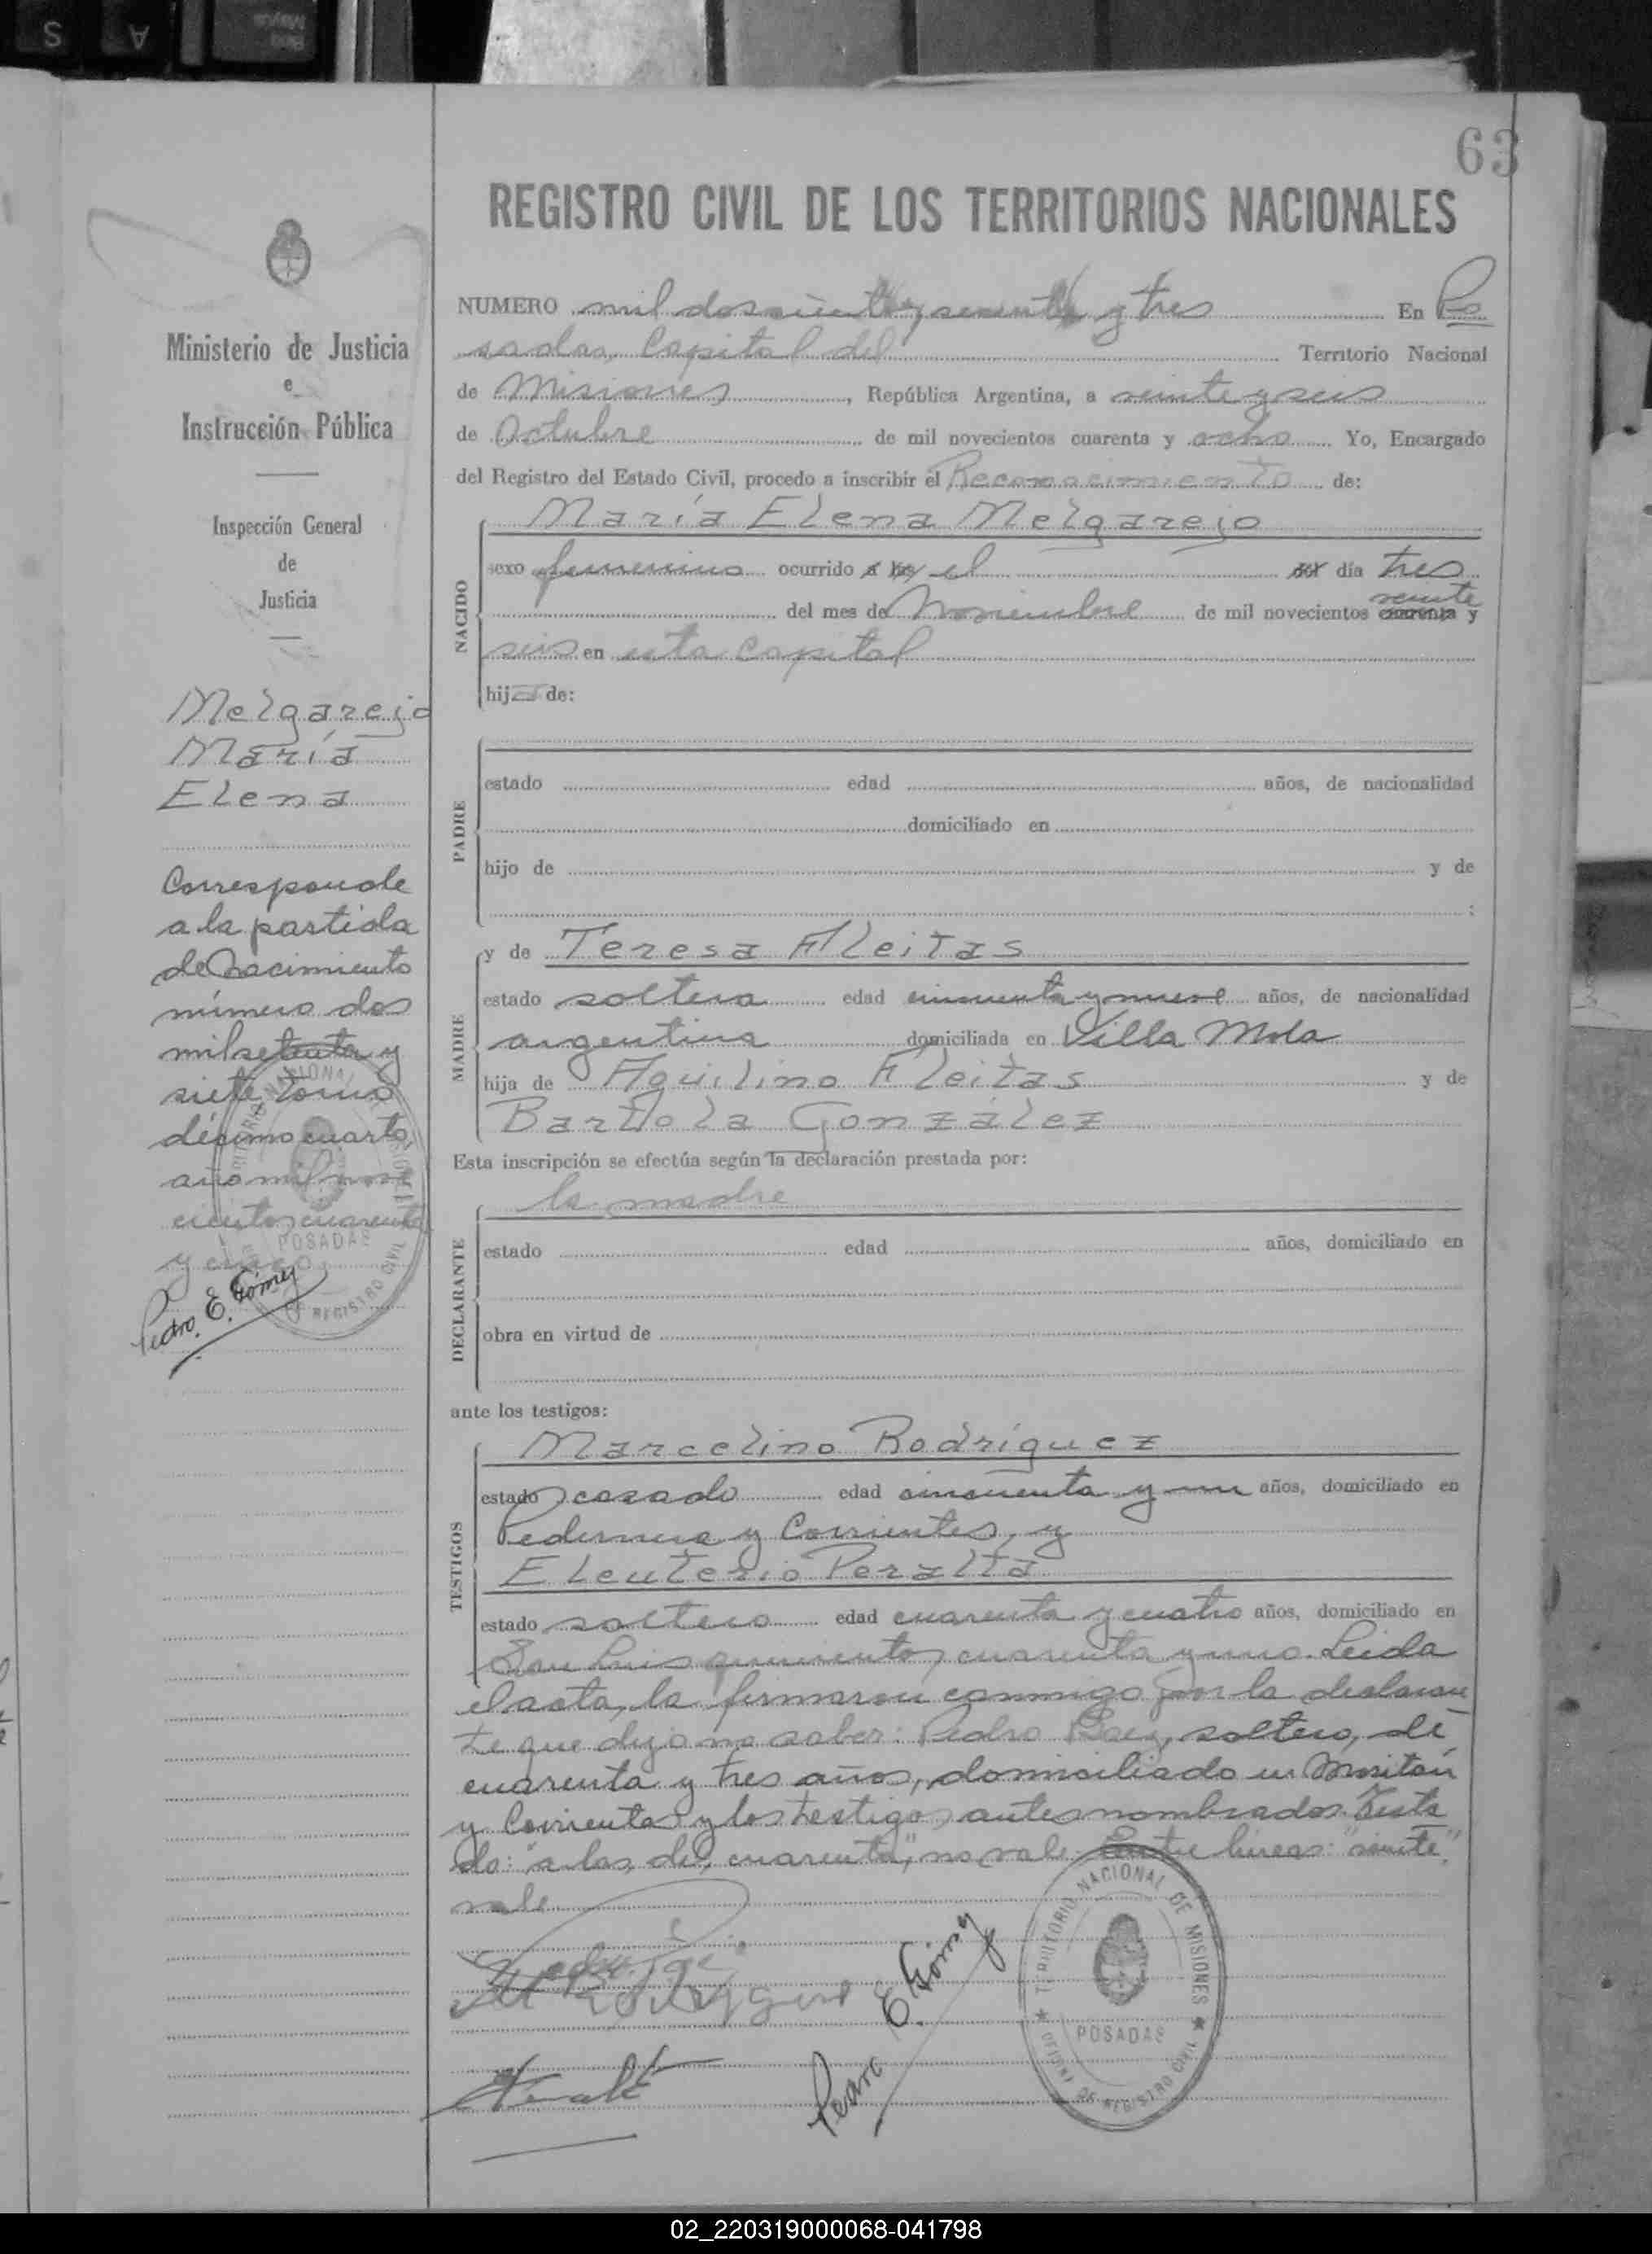 63
REGISTRO CIVIL DE LOS TERRITORIOS NACIONALES
NUMERO mil doscientos sesenta y tres En Po
sadas, Capital del Territorio Nacional
de Misiones, República Argentina, a veinte y seis
de Octubre de mil novecientos cuarenta y ocho Yo, Encargado
del Registro del Estado Civil, procedo a inscribir el Reconocimiento de:
María Elena Melgarejo
NACIDO
sexo femenino ocurrido a las el del día tres
del mes de Noviembre de mil novecientos cuarenta veinte y
seis en esta capital
hija de:
PADRE
estado edad años, de nacionalidad
domiciliado en
hijo de y de
:
MADRE
y de Teresa Fleitas
estado soltera edad cincuenta y nueve años, de nacionalidad
argentina domiciliada en Villa Mola
hija de Aquilino Fleitas y de
Bartola González
Esta inscripción se efectúa según la declaración prestada por:
la madre
DECLARANTE
estado edad años, domiciliado en
obra en virtud de
ante los testigos:
TESTIGOS
Marcelino Rodríguez
estado casado edad cincuenta y un años, domiciliado en
Pedernera y Corrientes, y
Eleuterio Peralta
estado soltero edad cuarenta y cuatro años, domiciliado en
San Luis quinientos cuarenta y uno. Leida
el acta, la firmaron conmigo por la declaran
te que dijo no saber: Pedro soltero, de
cuarenta y tres años, domiciliado en
y Corrientes y los testigos antes nombrados. Testa
do: "a las, del, cuarenta", no vale. Entre lineas: "veinte",
vale
Pedro E. Gómez
TERRITORIO NACIONAL DE MISIONES
POSADAS
OFICINA DE REGISTRO CIVIL
Ministerio de Justicia
e
Instrucción Pública
Inspección General
de
Justicia
Melgarejo
María
Elena
Corresponde
a la partida
de Nacimiento
número dos
mil setenta y
siete, tomo
décimo cuarto,
año mil nove
cientos cuarenta
y cinco
Pedro E. Gómez
POSADAS
02_220319000068-041798